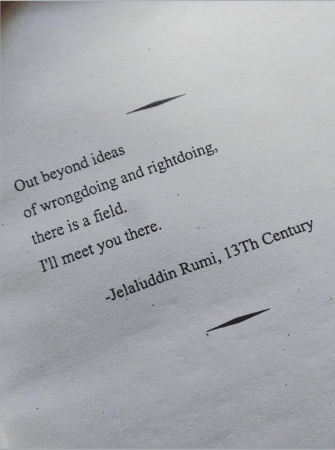 Out beyond ideas
of wrongdoing and rightdoing,
there is a field.
I'll meet you there.
-Jelaluddin Rumi, 13Th Century